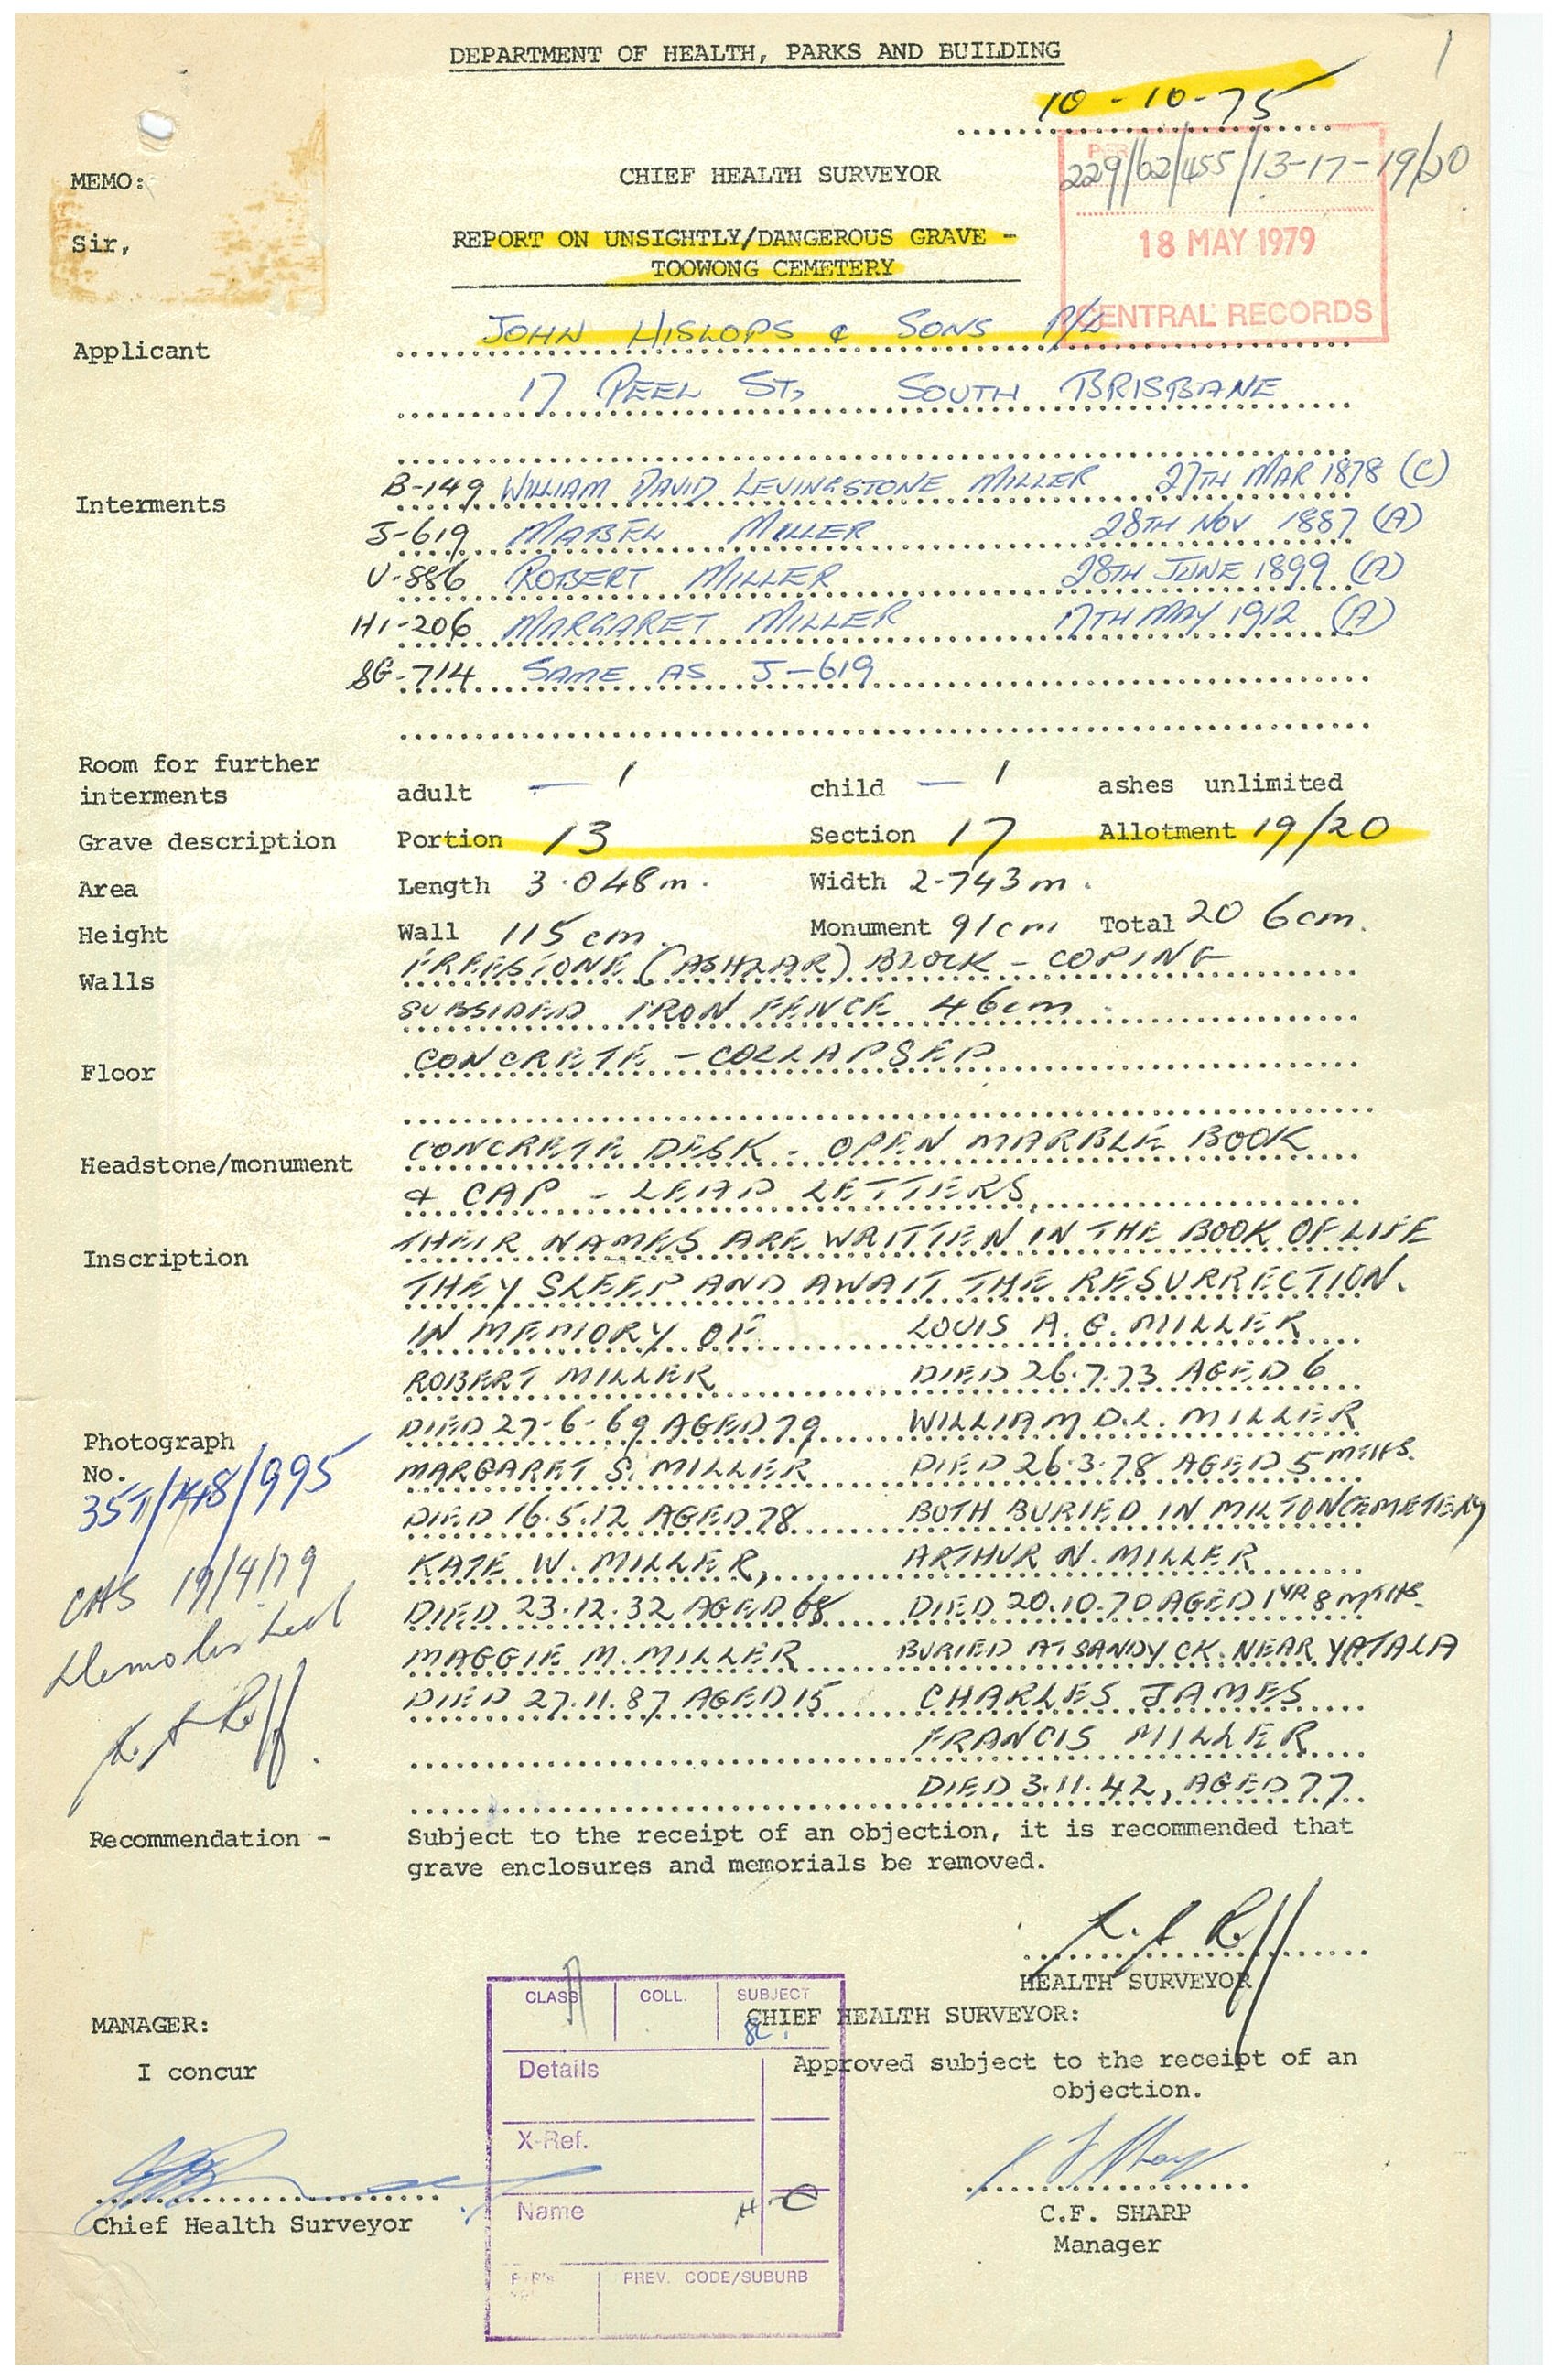 1
DEPARTMENT OF HEALTH, PARKS AND BUILDING
10-10-75
229/62/455/13-17-19/20
MEMO:
CHIEF HEALTH SURVEYOR
Sir,
REPORT ON UNSIGHTLY/DANGEROUS GRAVE -
TOOWONG CEMETERY
18 MAY 1979
CENTRAL RECORDS
Applicant JOHN HISLOPS & SONS P/L
17 PEEL ST, SOUTH BRISBANE
Interments B-149 WILLIAM DAVID LEVINGSTONE MILLER 27TH MAR 1878 (C)
J-619 MABEL MILLER 28TH NOV 1887 (A)
U-886 ROBERT MILLER 28TH JUNE 1899 (A)
H1-206 MARGARET MILLER 17TH MAY 1912 (A)
8G-714 SAME AS J-619
Room for further
interments adult - 1 child - 1 ashes unlimited
Grave description Portion 13 Section 17 Allotment 19/20
Area Length 3.048m. Width 2.743m.
Height Wall 115cm. Monument 91cm Total 206cm.
Walls FREESTONE (ASHLAR) BLOCK - COPING
SUBSIDED IRON FENCE 46cm
Floor CONCRETE - COLLAPSED
Headstone/monument CONCRETE DESK - OPEN MARBLE BOOK
& CAP - LEAD LETTERS
Inscription THEIR NAMES ARE WRITTEN IN THE BOOK OF LIFE
THEY SLEEP AND AWAIT THE RESURRECTION.
IN MEMORY OF LOUIS A. G. MILLER
ROBERT MILLER DIED 26.7.73 AGED 6
DIED 27-6-69 AGED 79 WILLIAM D.L. MILLER
Photograph
No. MARGARET S. MILLER DIED 26.3.78 AGED 5 MTHS.
35T/148/995
DIED 16.5.12 AGED 78 BOTH BURIED IN MILTON CEMETERY
KATE W. MILLER, ARTHUR N. MILLER
CHS 19/4/79
DIED 23.12.32 AGED 68 DIED 20.10.70 AGED 1 YR 8 MTHS.
Demolished
MAGGIE M. MILLER BURIED AT SANDY CK. NEAR YATALA
DIED 27.11.87 AGED 15 CHARLES JAMES
FRANCIS MILLER
DIED 3.11.42, AGED 77
Recommendation - Subject to the receipt of an objection, it is recommended that
grave enclosures and memorials be removed.
HEALTH SURVEYOR
CLASS COLL. SUBJECT
MANAGER: CHIEF HEALTH SURVEYOR:
I concur
Details
Approved subject to the receipt of an
objection.
X-Ref.
Name
Chief Health Surveyor
C.F. SHARP
Manager
PREV. CODE/SUBURB